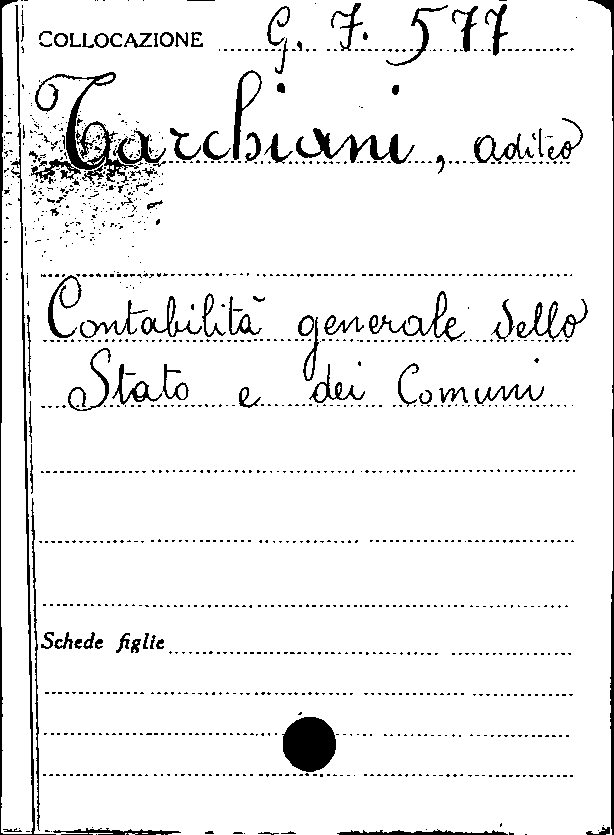 COLLOCAZIONE G. F. 577
Tarchiani, aditeo
Contabilità generale dello
Stato e dei Comuni
Schede figlie